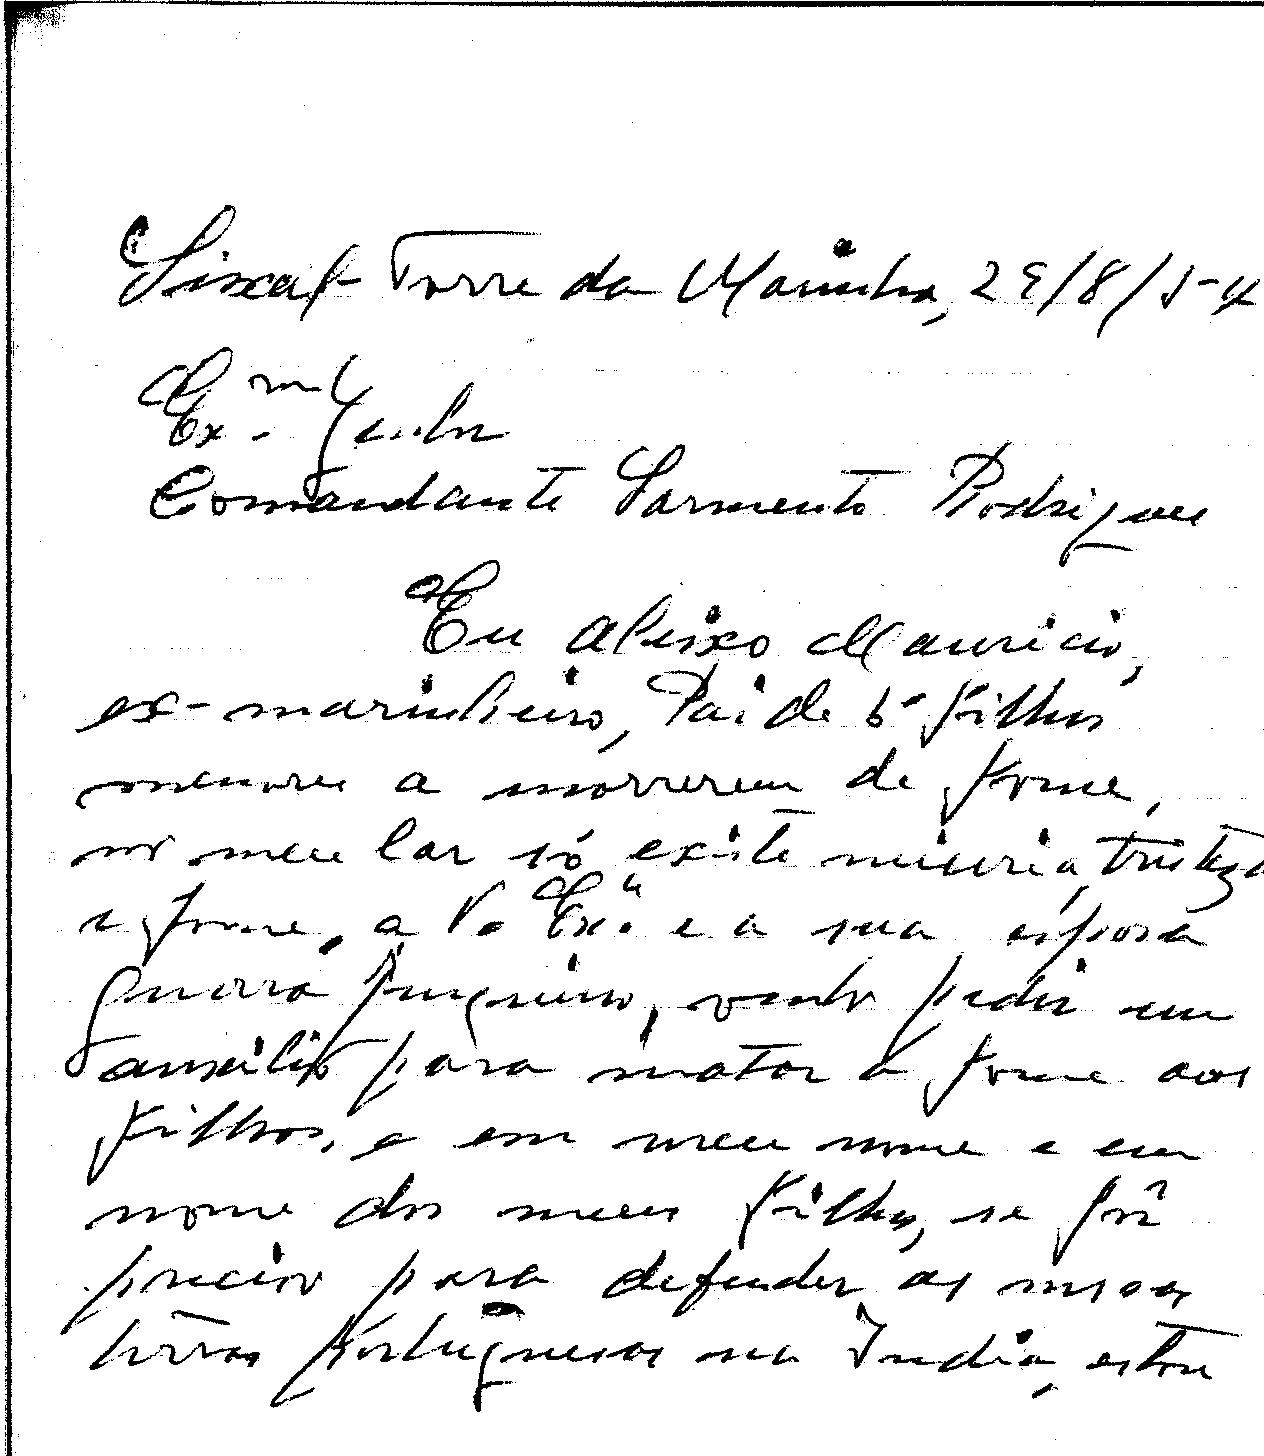 Seixal - Torre da Marinha, 29/8/54
Ex.mo Senhor
Comandante Sarmento Rodrigues
Eu Aleixo Mauricio,
ex-marinheiro, Pai de 6 Filhos
menores a morrerem de fome,
no meu lar só existe miseria, tristeza
e fome, a V. Ex.ª e a sua esposa
venho pedir um
auxilio para matar a fome aos
Filhos, e em meu nome e em
nome dos meus Filhos, se fôr
preciso para defender as nossas
terras Portuguesas na India, estou